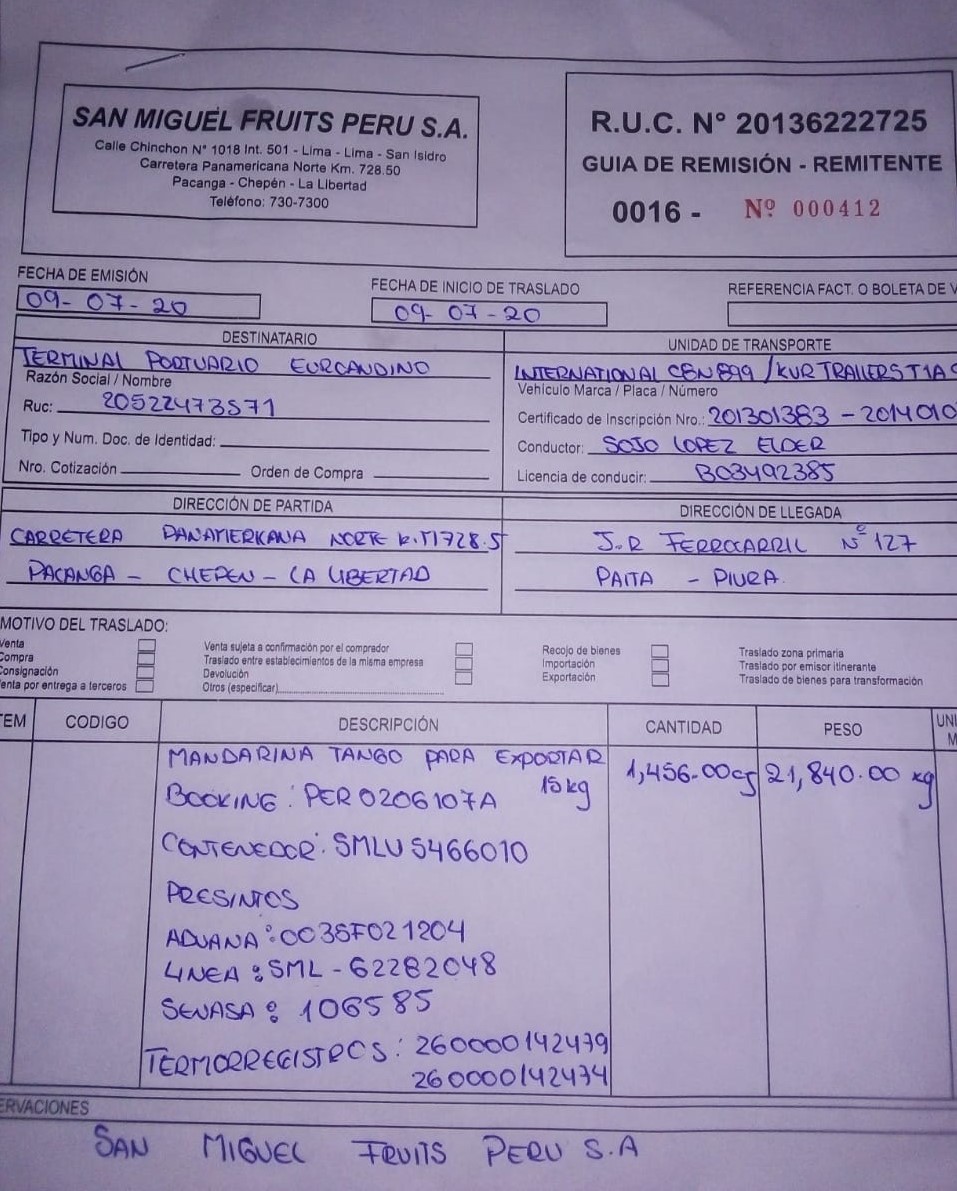 SAN MIGUEL FRUITS PERU S.A.
Calle Chinchon N° 1018 Int. 501 - Lima - Lima - San Isidro
Carretera Panamericana Norte Km. 728.50
Pacanga - Chepén - La Libertad
Teléfono: 730-7300
R.U.C. N° 20136222725
GUIA DE REMISIÓN - REMITENTE
0016 - Nº 000412
FECHA DE EMISIÓN
09-07-20
FECHA DE INICIO DE TRASLADO
09-07-20
REFERENCIA FACT. O BOLETA DE V
DESTINATARIO
TERMINAL PORTUARIO EUROANDINO
Razón Social / Nombre
Ruc: 20522473571
Tipo y Num. Doc. de Identidad:
Nro. Cotización Orden de Compra
UNIDAD DE TRANSPORTE
INTERNATIONAL C8N899 /
Vehículo Marca / Placa / Número
Certificado de Inscripción Nro.: 201301383 - 2014010
Conductor: SOJO LOPEZ ELDER
Licencia de conducir: B03492385
DIRECCIÓN DE PARTIDA
CARRETERA PANAMERICANA NORTE K.M728.5
PACANGA - CHEPEN - LA LIBERTAD
DIRECCIÓN DE LLEGADA
J.R FERROCARRIL Nº 127
PAITA - PIURA.
MOTIVO DEL TRASLADO:
Venta
Compra
Consignación
enta por entrega a terceros
Venta sujeta a confirmación por el comprador
Traslado entre establecimientos de la misma empresa
Devolución
Otros (especificar)
Recojo de bienes
Importación
Exportación
Traslado zona primaria
Traslado por emisor itinerante
Traslado de bienes para transformación
TEM CODIGO DESCRIPCIÓN CANTIDAD PESO UNI
M
MANDARINA TANGO PARA EXPORTAR 1,456.00cj 21,840.00 kg
15kg
BOOKING: PER0206107A
CONTENEDOR: SMLU 5466010
PRESINTOS
ADUANA: 0035F021204
LINEA: SML - 62282048
SENASA: 106585
TERMORREGISTROS: 260000142479
260000142474
ERVACIONES
SAN MIGUEL FRUITS PERU S.A